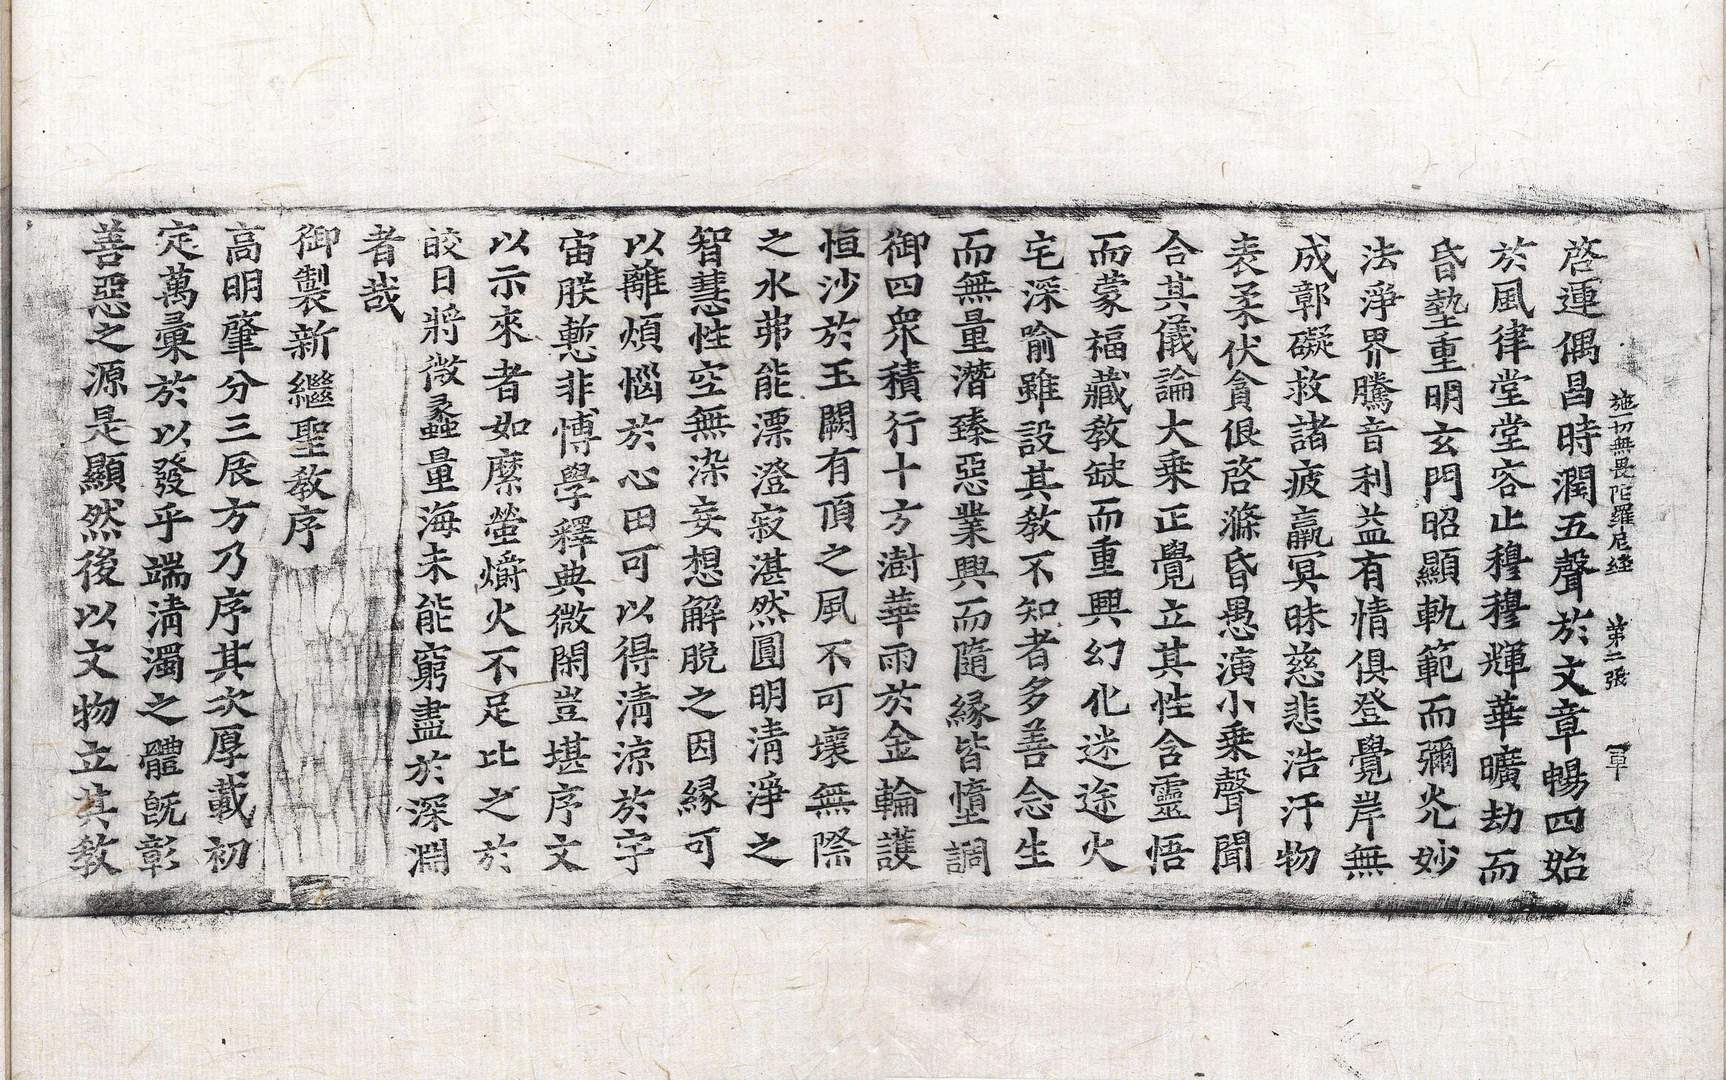 施一切無畏陀羅尼經　第二張　草
啓運偶昌時潤五聲於文章暢四始
於風律堂堂容止穆穆輝華曠劫而
昏墊重明玄門昭顯軌範而彌光妙
法淨界騰音利益有情俱登覺岸無
成鄣礙救諸疲羸冥昧慈悲浩汗物
表柔伏貪佷啓滌昏愚演小乗聲聞
合其儀論大乗正覺立其性含靈悟
而蒙福藏教缺而重興幻化迷途火
宅深喻雖設其教不知者多善念生
而無量潛臻惡業興而隨緣皆墮調
御四衆積行十方澍華雨於金輪護
恒沙於玉闕有頂之風不可壞無際
之水弗能漂澄寂湛然圓明清淨之
智慧性空無染妄想解脫之因緣可
以離煩惱於心田可以得清涼於宇
宙朕慙非博學釋典微閑豈堪序文
以示來者如縻螢爝火不足比之於
皎日將微蠡量海未能窮盡於深淵
者哉
御製新繼聖教序
高明肇分三辰方乃序其次厚載初
定萬彙於以發乎端清濁之體旣彰
善惡之源是顯然後以文物立其教